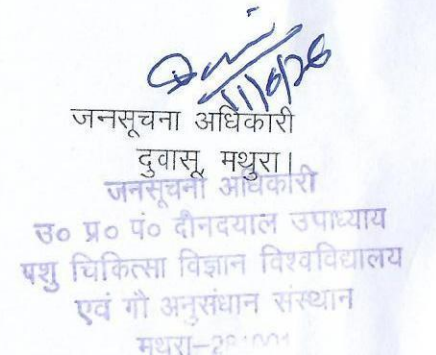 जनसूचना अधिकारी
दुवासू, मथुरा।
जनसूचना अधिकारी
उ० प्र० पं० दीनदयाल उपाध्याय
पशु चिकित्सा विज्ञान विश्वविद्यालय
एवं गौ अनुसंधान संस्थान
मथुरा-281001